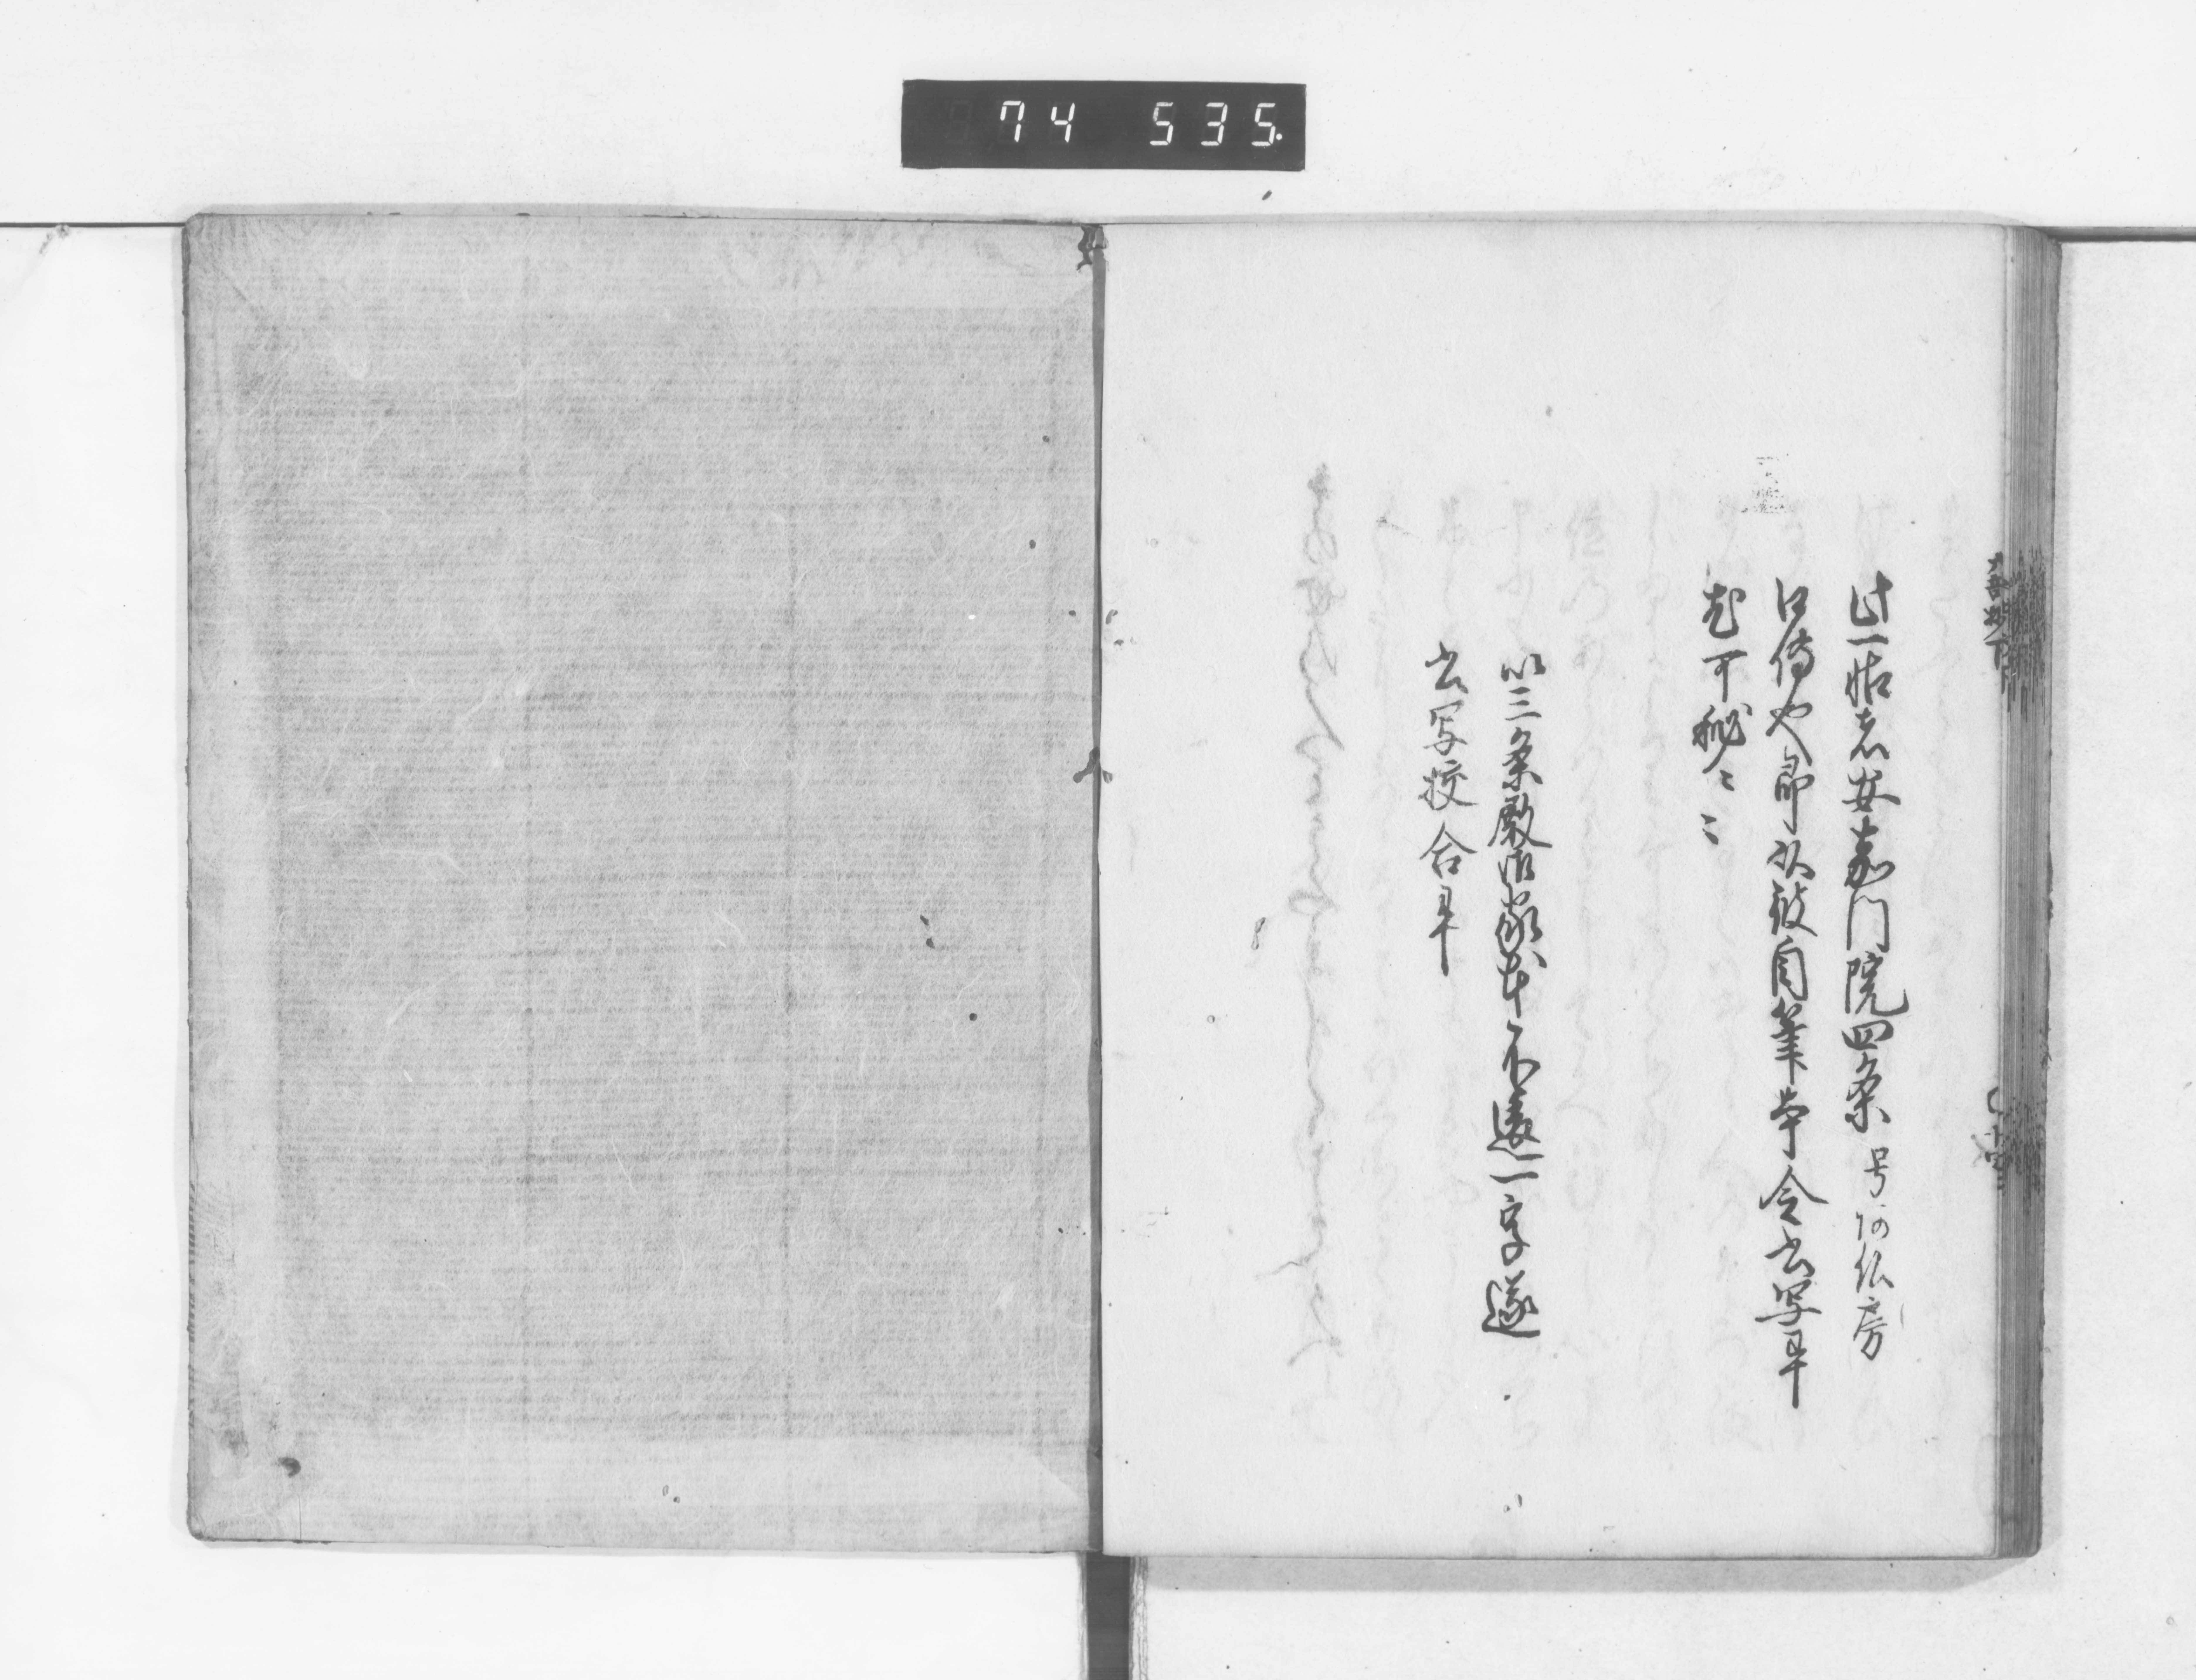 74 535.
此一帖者安嘉門院四条 号阿仏房
口傳也即以彼自筆本令書写畢
尤可秘〻〻
以三条殿御家本不違一字遂
書写校合畢